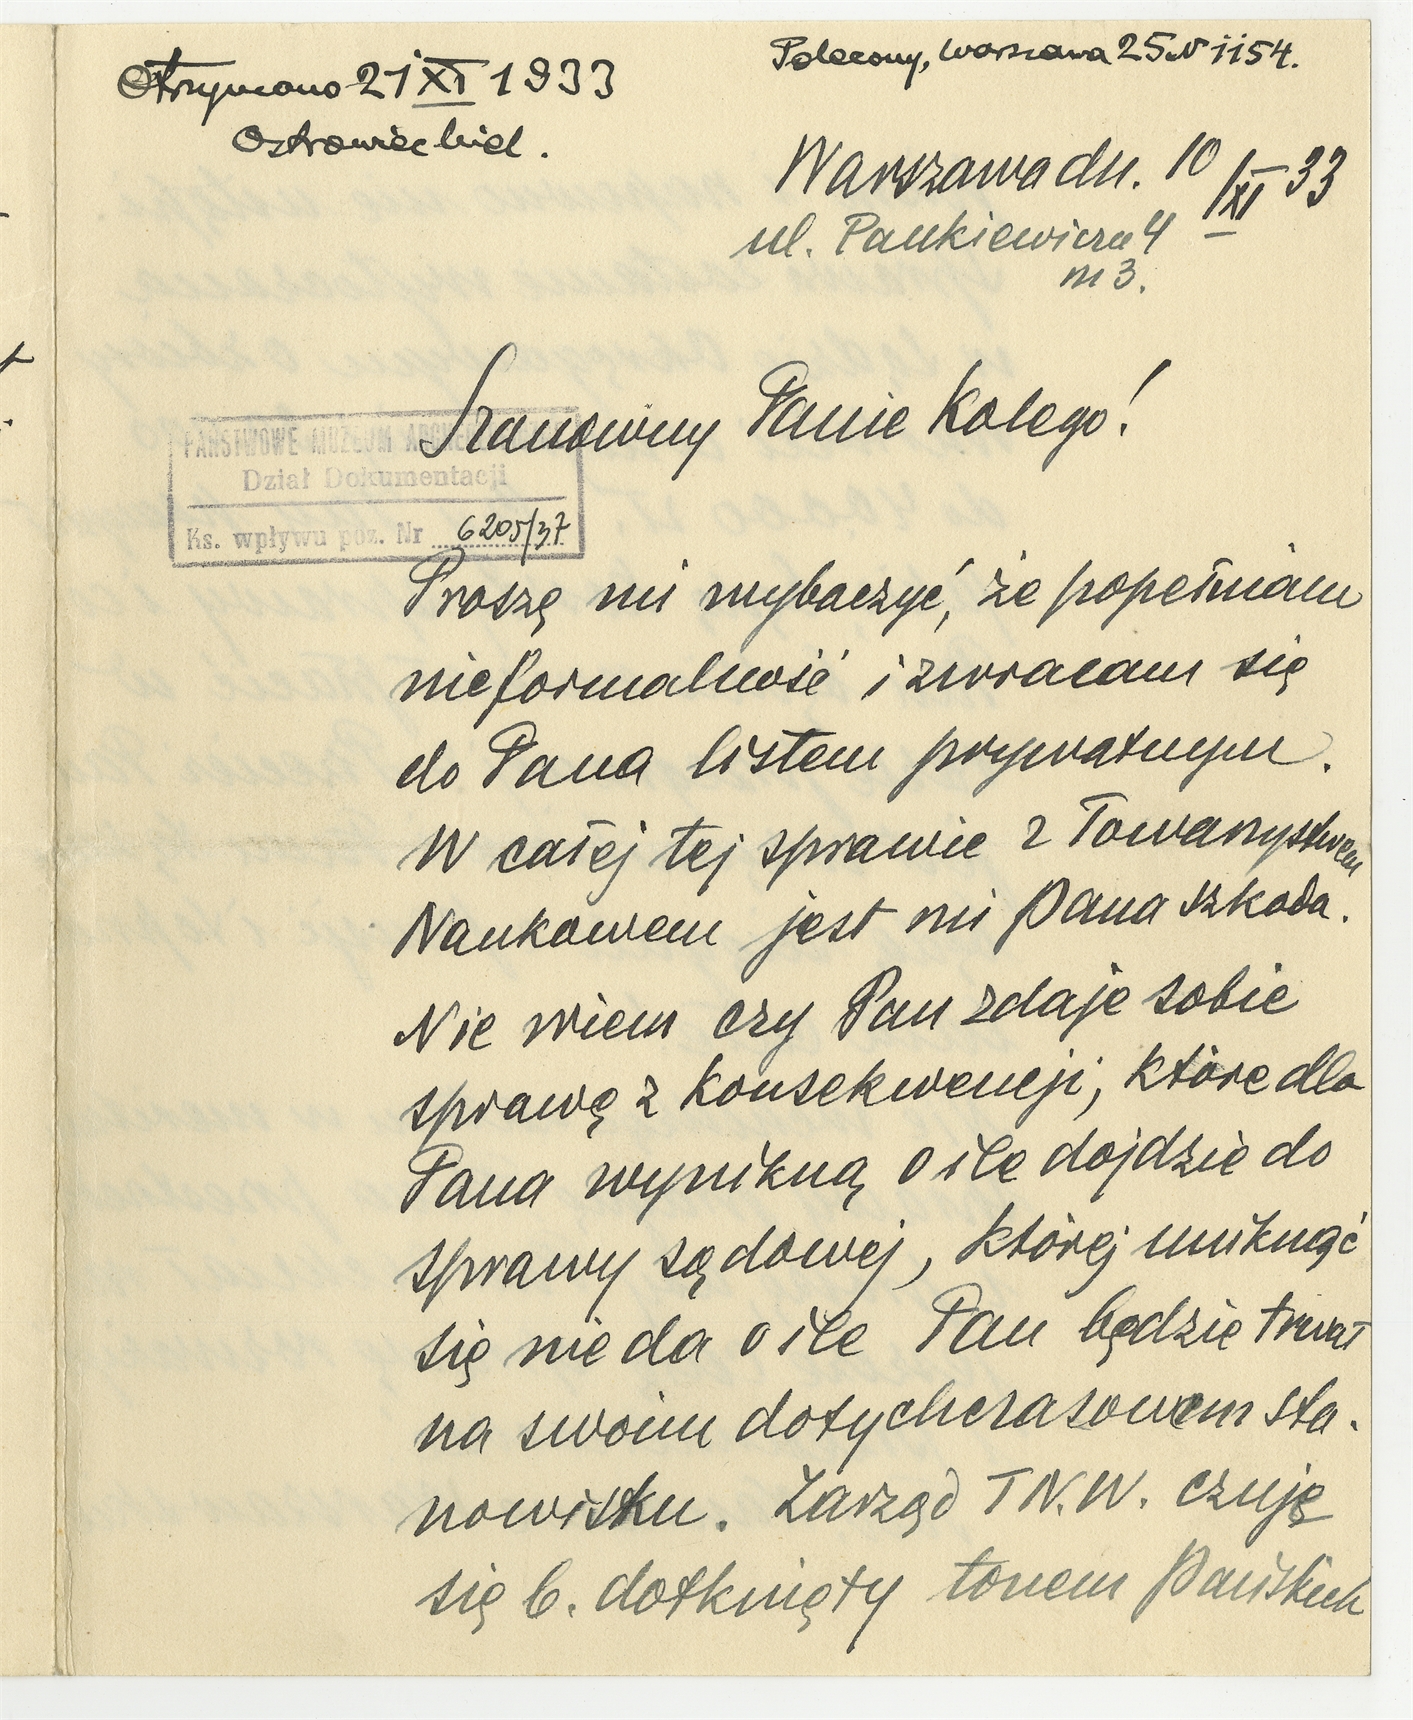 Otrzymano 21 XI 1933
Ostrowiec kiel.
Polecony, Warszawa 25 N 1154.
Warszawa dn. 10/XI 33
ul. Pankiewicza 4
m 3.
Szanowny Panie Kolego!
PAŃSTWOWE MUZEUM
Dział Dokumentacji
Ks. wpływu poz. Nr 6205/37
Proszę mi wybaczyć, że popełniam
nieformalność i zwracam się
do Pana listem prywatnym.
W całej tej sprawie z Towarzystwem
Naukowem jest mi Pana szkoda.
Nie wiem czy Pan zdaje sobie
sprawę z konsekwencji, które dla
Pana wynikną o ile dojdzie do
sprawy sądowej, której uniknąć
się nie da o ile Pan będzie trwał
na swoim dotychczasowem sta-
nowisku. Zarząd T.N.W. czuje
się b. dotknięty tonem Pańskich